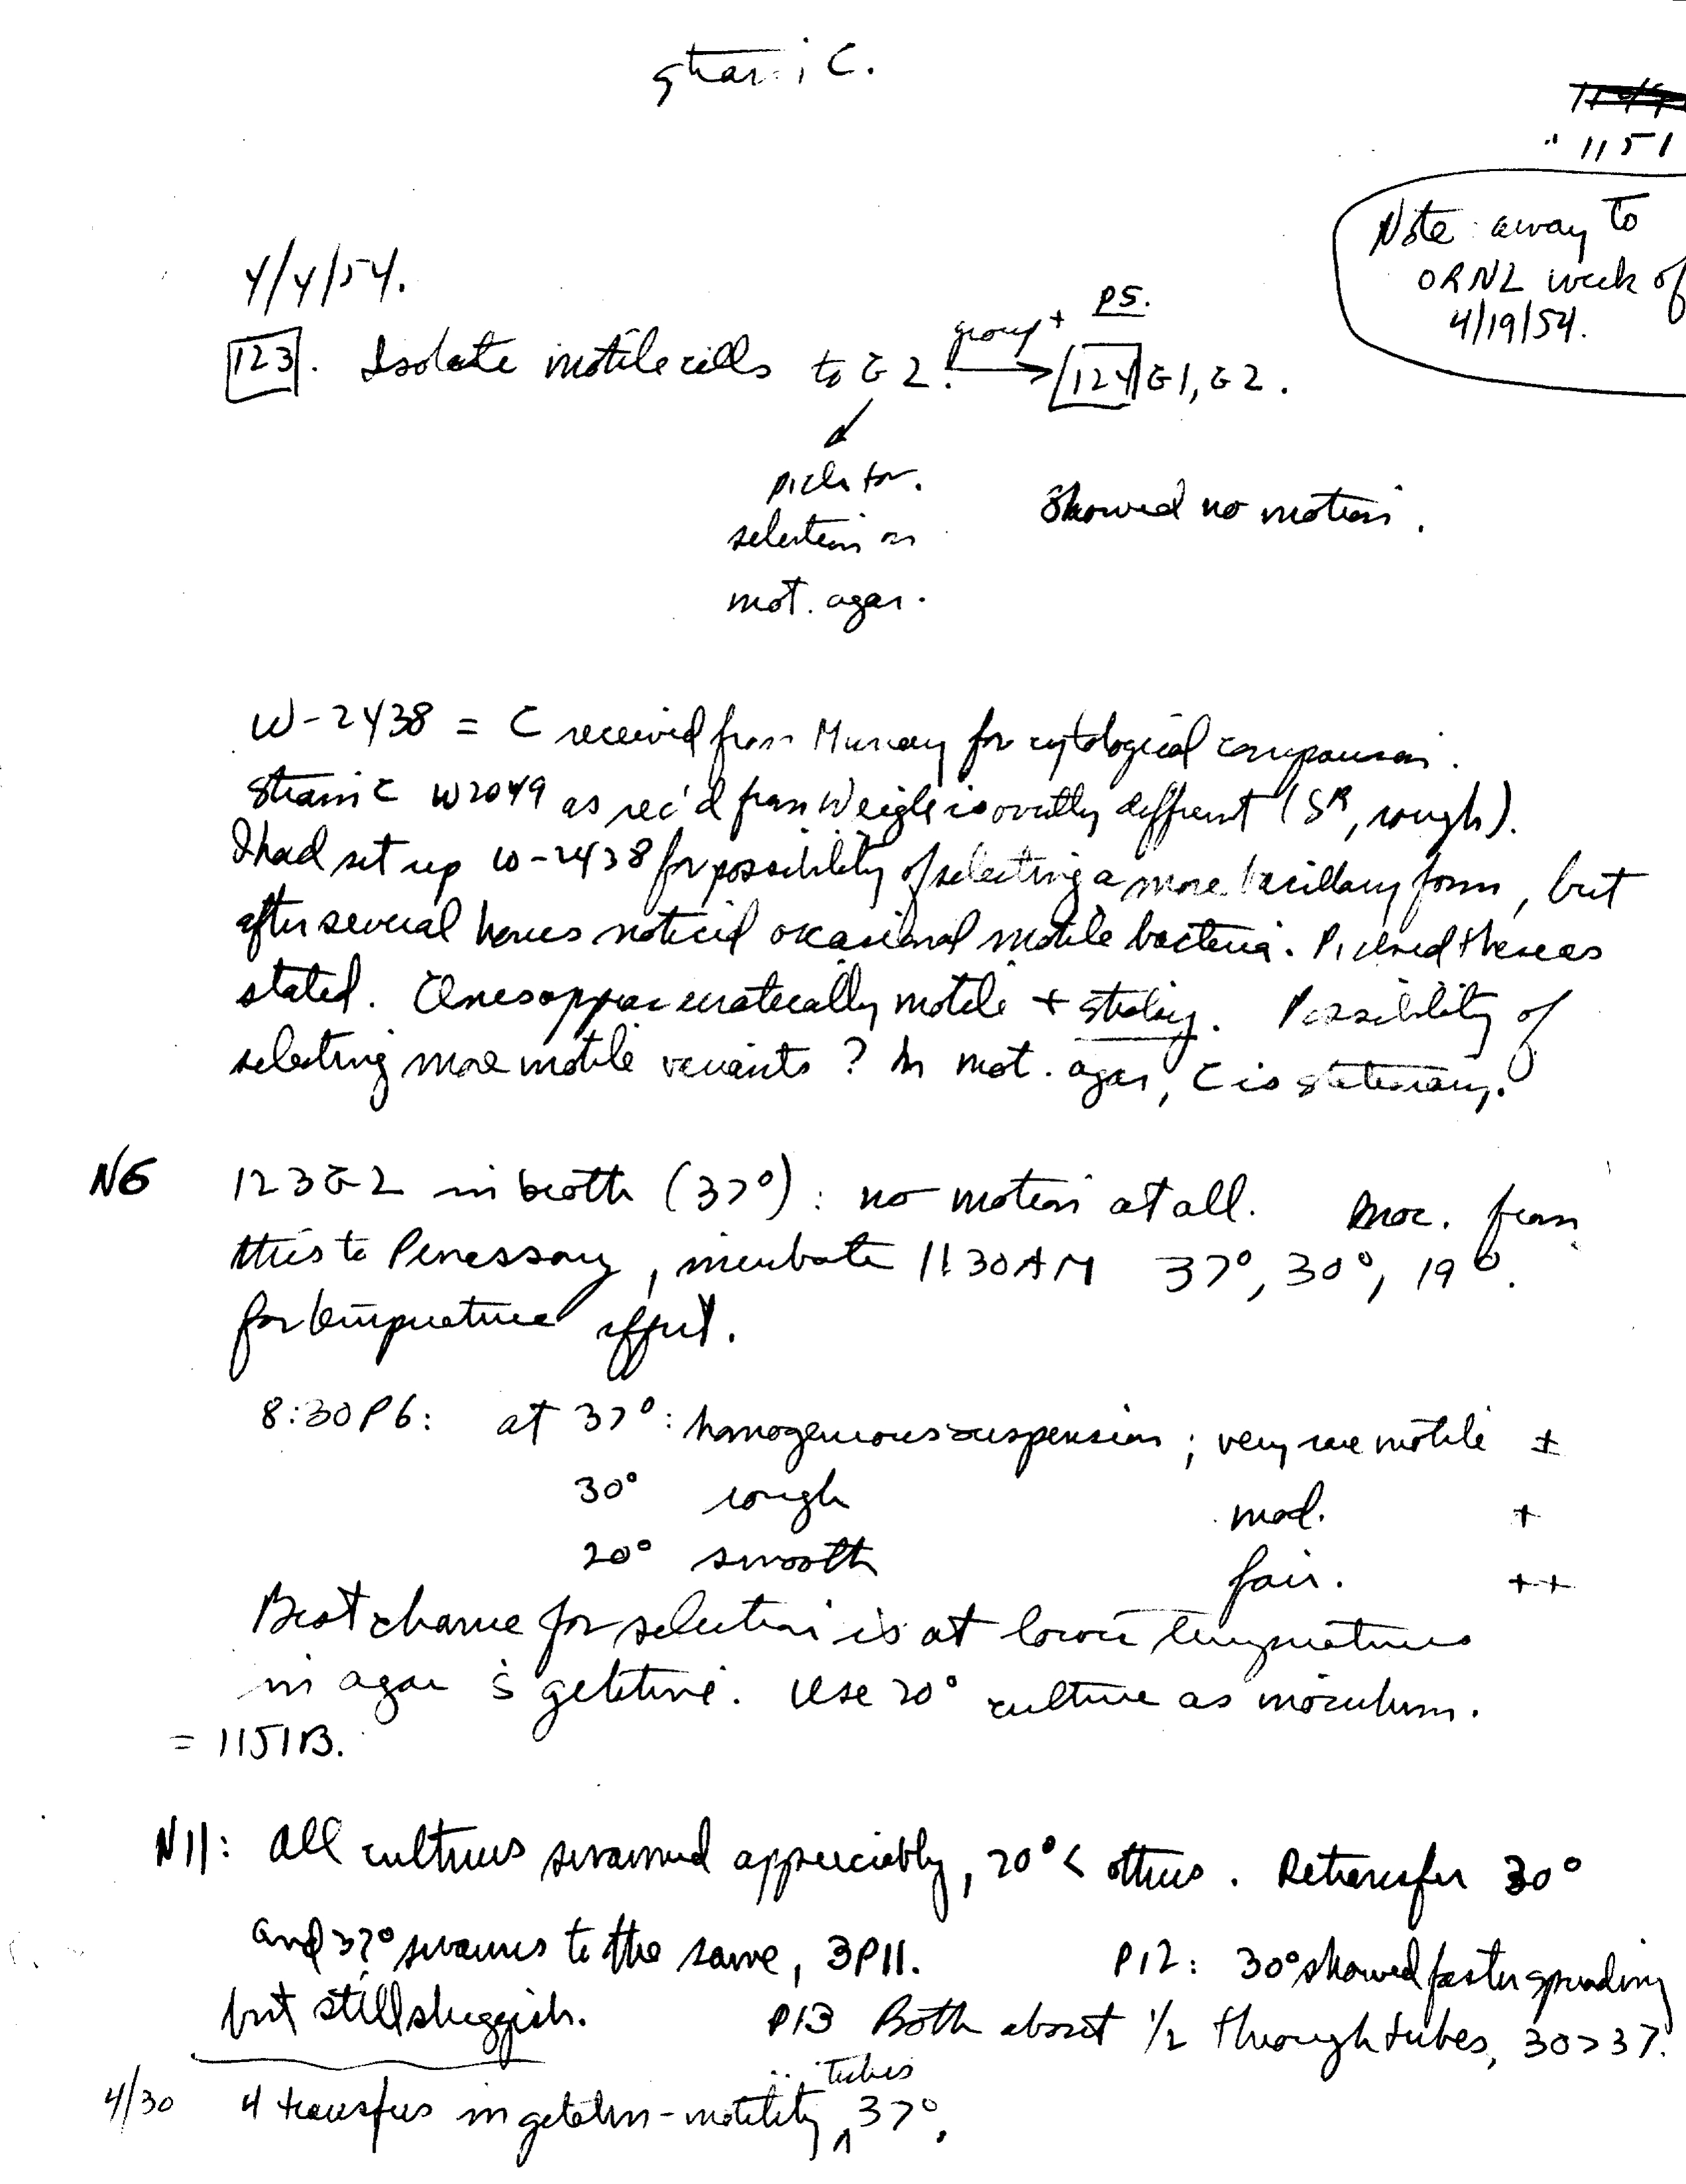 Strain C.
1151
Note: away to
ORNL week of
4/19/54.
4/4/54.
P5.
group +
123. Isolate motile cells to G2. → 124 G1, G2.
pick for
selection on
mot. agar.
Showed no motion.
W-2438 = C received from Murray for cytological comparison.
Strain C W2049 as rec'd from Weigle is overtly different (SR, rough).
I had set up W-2438 for possibility of selecting a more bacillary form, but
after several hours noticed occasional motile bacteria. Picked these as
stated. Ones appear erratically motile + sticky. Possibility of
selecting more motile variants? In mot. agar, C is stationary.
N6 123G2 in broth (37°): no motion at all. Inoc. from
this to Penassay, incubate 11:30AM 37°, 30°, 19°.
for temperature effect.
8:30P6: at 37°: homogenous suspension; very rare motile ±
30° rough mod. +
20° smooth fair. ++
Best chance for selection is at lower temperatures
in agar s̄ gelatine. Use 20° culture as inoculum.
= 1151B.
N11: All cultures swarmed appreciably, 20° < others. Retransfer 30°
and 37° swarms to the same, 3P11. P12: 30° showed faster spreading
but still sluggish. P13 Both about 1/2 through tubes, 30>37.
tubes
4/30 4 transfers in gelatin-motility ^ 37°.